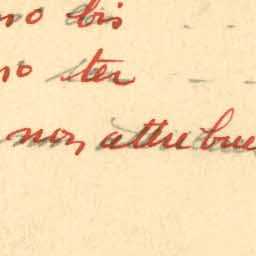 no bis
no ter
non attribue